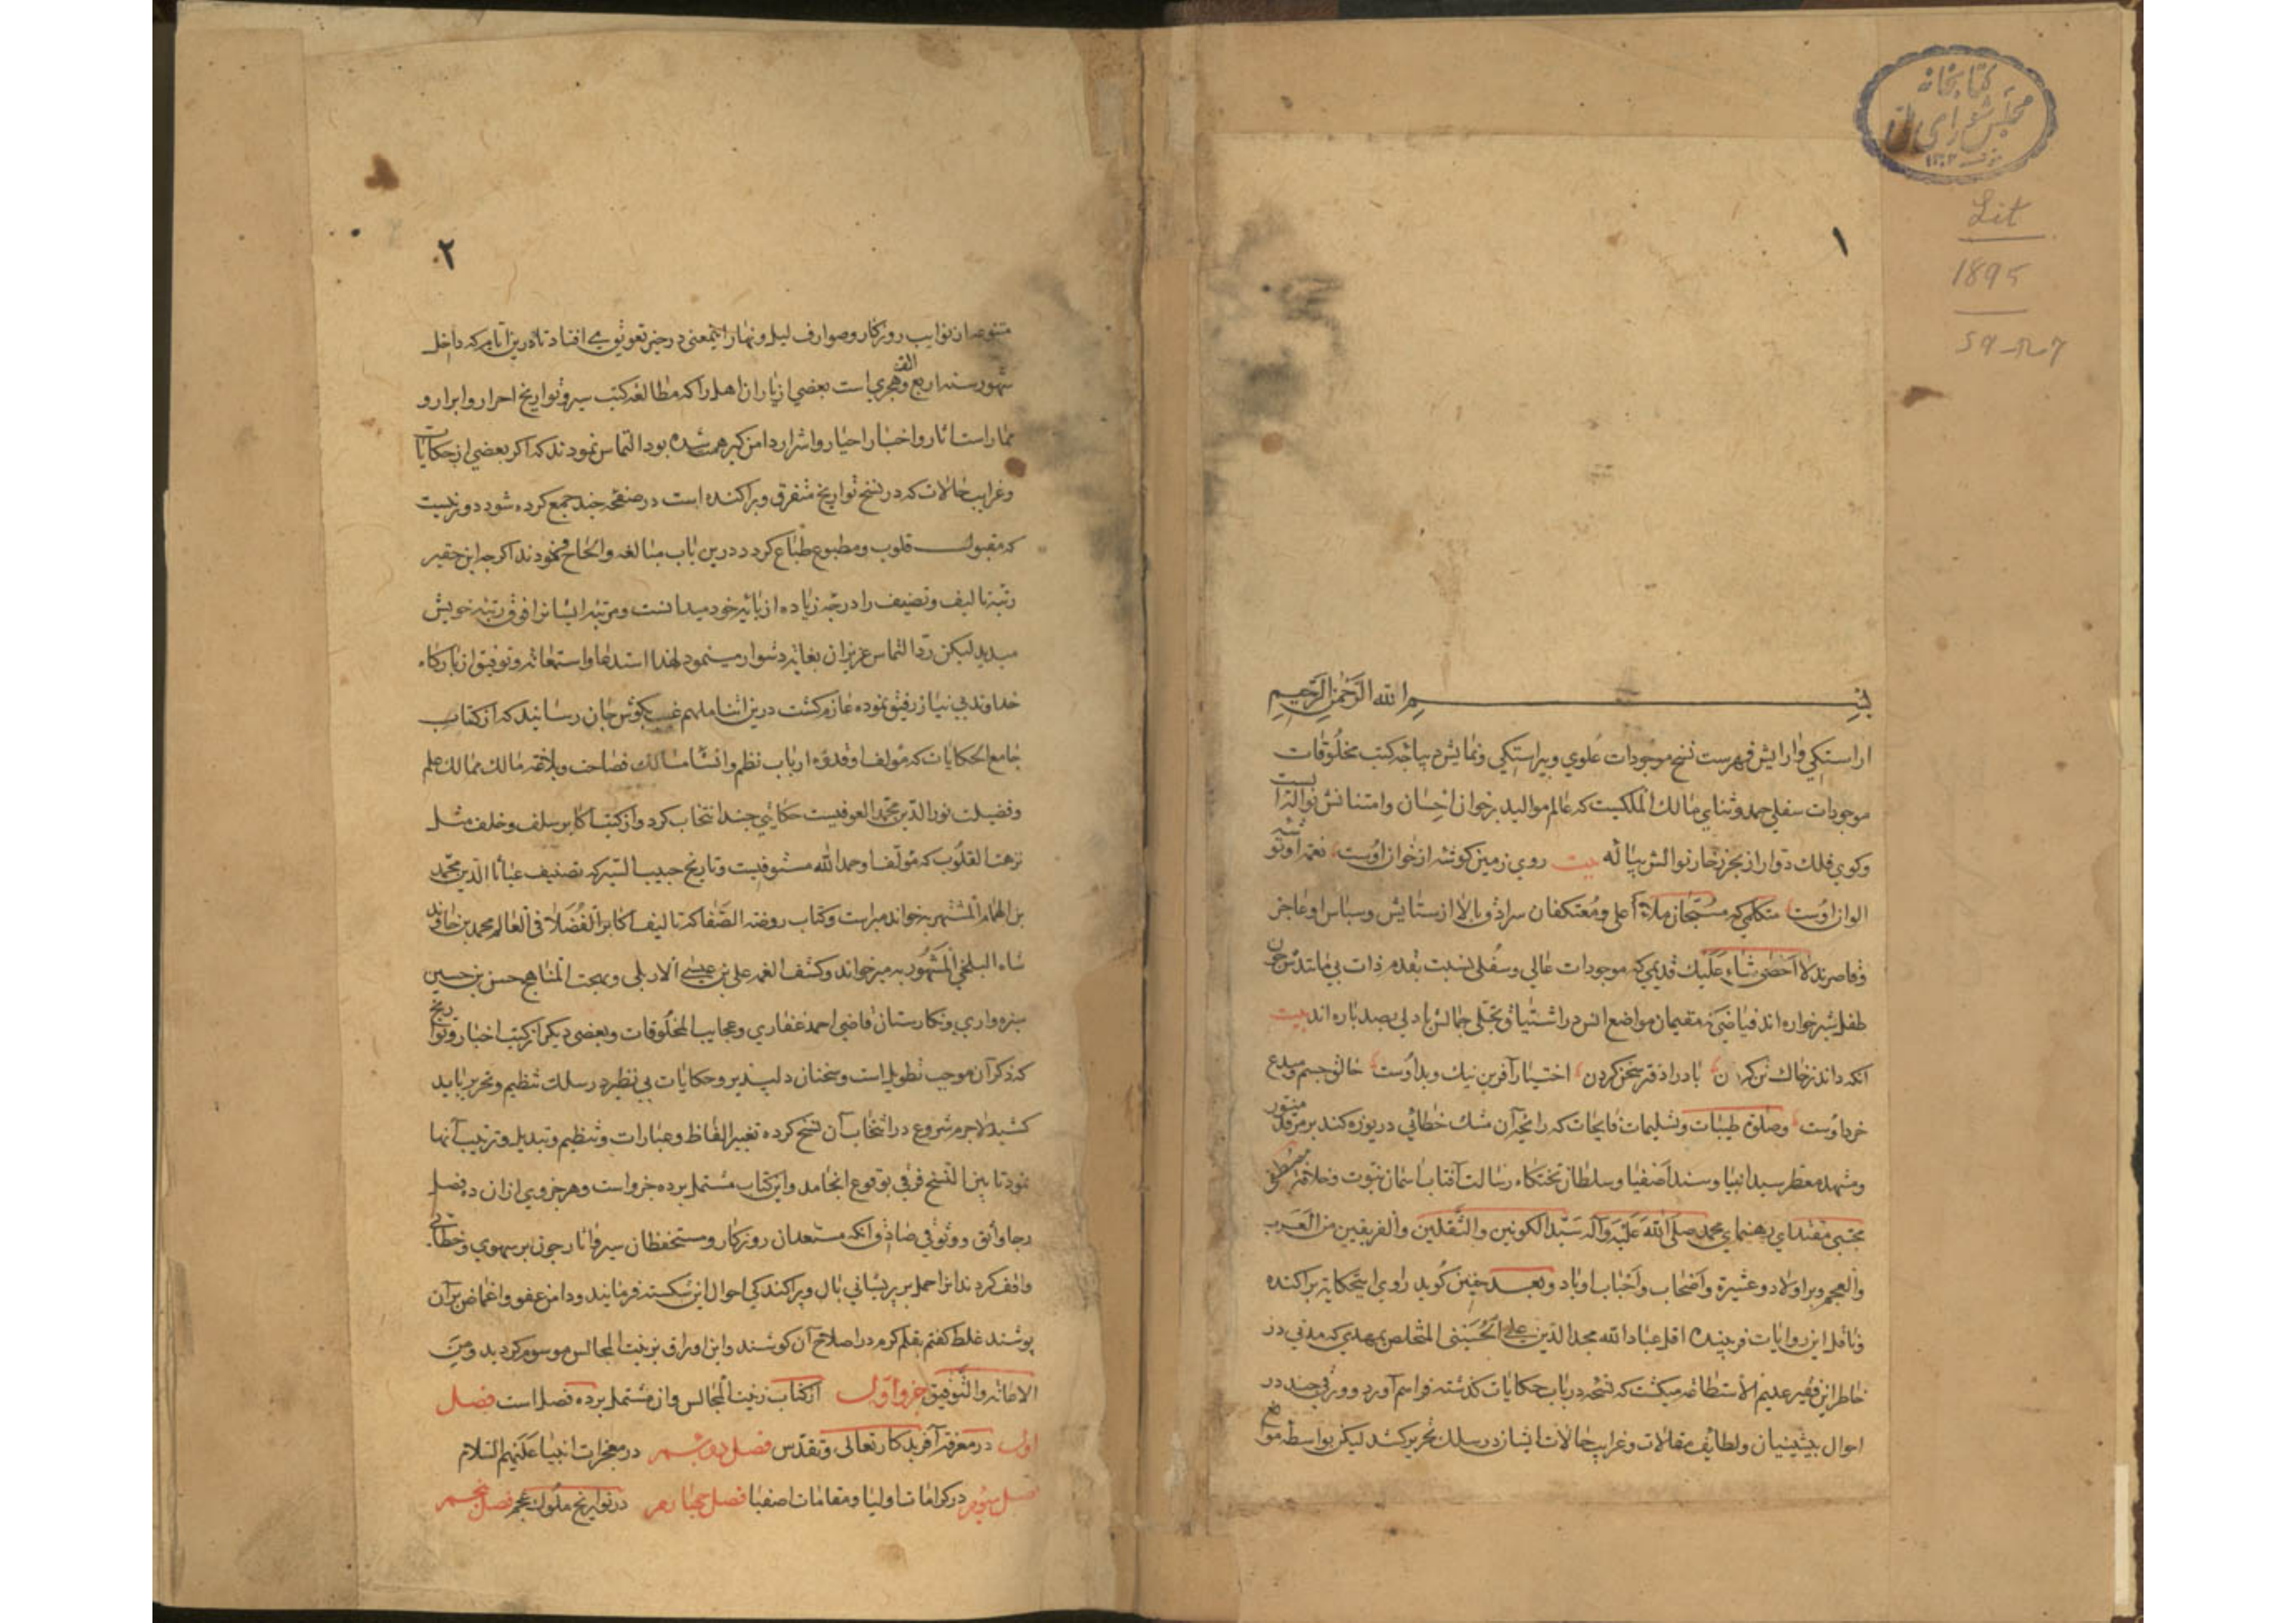 کتابخانه
مجلس شورای ملی
۱۳۰۲
Lit
1895
۱
بسم الله الرحمن الرحیم
اراستکی وارایش فهرست نسخ موجودات علوی وپیراستکی ونمایش دیباجه کتب مخلوقات
موجودات سفلی حمد وثنای مالک الملکیست که عالم موالید برخوان احسان وامتنانش نواله
وکوی فلک دوار از بحر زخار نوالش پیاله بیت روی زمین کوشه از خوان اوست نعمه او
الوان اوست متکلمی که مسبحان ملاء اعلی ومعتکفان سرادق بالا از ستایش وسپاس او عاجز
وقاصرند لا احصی ثناء علیک قدیمی که موجودات عالی وسفلی نسبت بقدم ذات بی مانندش چون
طفل شیرخواره اند فیاضی که مقیمان مواضع انس در اشتیاق تجلی جمالش با دلی بصد پاره اند بیت
انکه داند ز خاک تن کردن باد را دفتر سخن کردن اختیار آفرین نیک وبد اوست خالق جسم ومبدع
خرد اوست وصلوة طیبات وتسلیمات فایحات که رایحه آن مشک خطائی دریوزه کند بر مرقد منور
ومشهد معطر سید انبیا وسند اصفیا وسلطان تختکاه رسالت آفتاب اسمان نبوت وخلافت مصطفی
مجتبی مقتدای رهنمای محمد صلی الله علیه وآله سید الکونین والثقلین والفریقین من العرب
والعجم وبر اولاد وعشیرة واصحاب واحباب او باد وبعد چنین کوید راوی این حکایه پراکنده
وناقل این روایات فریبنده اقل عباد الله مجد الدین علی الحسینی المتخلص بمهدی که مدتی در
خاطر این فقیر عدیم الاستطاعه میکشت که نسخه در باب حکایات کذشته فراهم آورد وورقی چند در
احوال پیشینیان ولطایف مقالات وغرایب حالات ایشان در سلک تحریر کشد لیکن بواسطه موانع
۲
متنوعه از نوایب روزکار وصوارف لیل ونهار اینمعنی در حیز تعویق می افتاد تا درین ایام که داخل
شهور سنه اربع والف هجری است بعضی از یاران اهل را که مطالعه کتب سیر وتواریخ احرار وابرار و
ممارست اثار واخبار احیار واشرار دامن کیر همت شده بود التماس نمودند که اکر بعضی از حکایات
وغرایب حالات که در نسخ تواریخ متفرق وپراکنده است در صفحه چند جمع کرده شود دور نیست
که مقبول قلوب ومطبوع طباع کردد درین باب مبالغه والحاح نمودند اکرچه این حقیر
رتبه تالیف وتصنیف را درجه زیاده از پایه خود میدانست ومرتبه ایشانرا فوق رتبه خویش
میدید لیکن رد التماس عزیزان بغایه دشوار مینمود لهذا استدعا واستعانه وتوفیق از بارکاه
خداوند بی نیاز رفیق نموده عازم کشت درین اثنا ملهم غیب بکوش جان رسانید که از کتاب
جامع الحکایات که مولف او قدوه ارباب نظم وانشا مسالک فصاحت وبلاغه مالک ممالک علم
وفضیلت نور الدین محمد العوفیست حکایتی چند انتخاب کرد واز کتب اکابر سلف وخلف مثل
نزهت القلوب که مولف او حمد الله مستوفیست وتاریخ حبیب السیر که تصنیف غیاث الدین محمد
بن الهمام المشتهر بخواند میر است وکتاب روضه الصفا که تالیف اکابر الفضلاء فی العالم محمد بن خاوند
شاه البلخی المشهور به میر خواند وکشف الغمه علی بن عیسی الاربلی وبهجت المناهج حسن بن حسین
سبزواری ونکارستان قاضی احمد غفاری وعجایب المخلوقات وبعضی دیکر از کتب اخبار وتواریخ
که ذکر آن موجب تطویل است وسخنان دلپذیر وحکایات بی نظیر در سلک تنظیم وتحریر باید
کشید لاجرم شروع در انتخاب آن نسخ کرده تغییر الفاظ وعبارات وتنظیم وتبدیل وترتیب آنها
نمود تا بین النسخ فرقی بوقوع انجامد واین کتاب مشتمل بر ده جزو است وهر جزوی از ان ده فصل
رجا واثق ووثوقی صادق انکه مستعدان روزکار ومستحفظان سیر واثار چون بر سهوی وخطائی
واقف کردند انرا حمل بر پریشانی بال وپراکندکی احوال این شکسته فرمایند ودامن عفو واغماض بر آن
پوشند غلط کفتم بقلم کرم در اصلاح آن کوشند واین اوراق بزینت المجالس موسوم کردید ومن
الاعانه والتوفیق جزو اول از کتاب زینت المجالس وان مشتمل بر ده فصل است فصل
اول در معرفت آفریدکار تعالی وتقدس فصل دوم در معجزات انبیا علیهم السلام
فصل سیوم در کرامات اولیا ومقامات اصفیا فصل چهارم در تواریخ ملوک عجم فصل پنجم